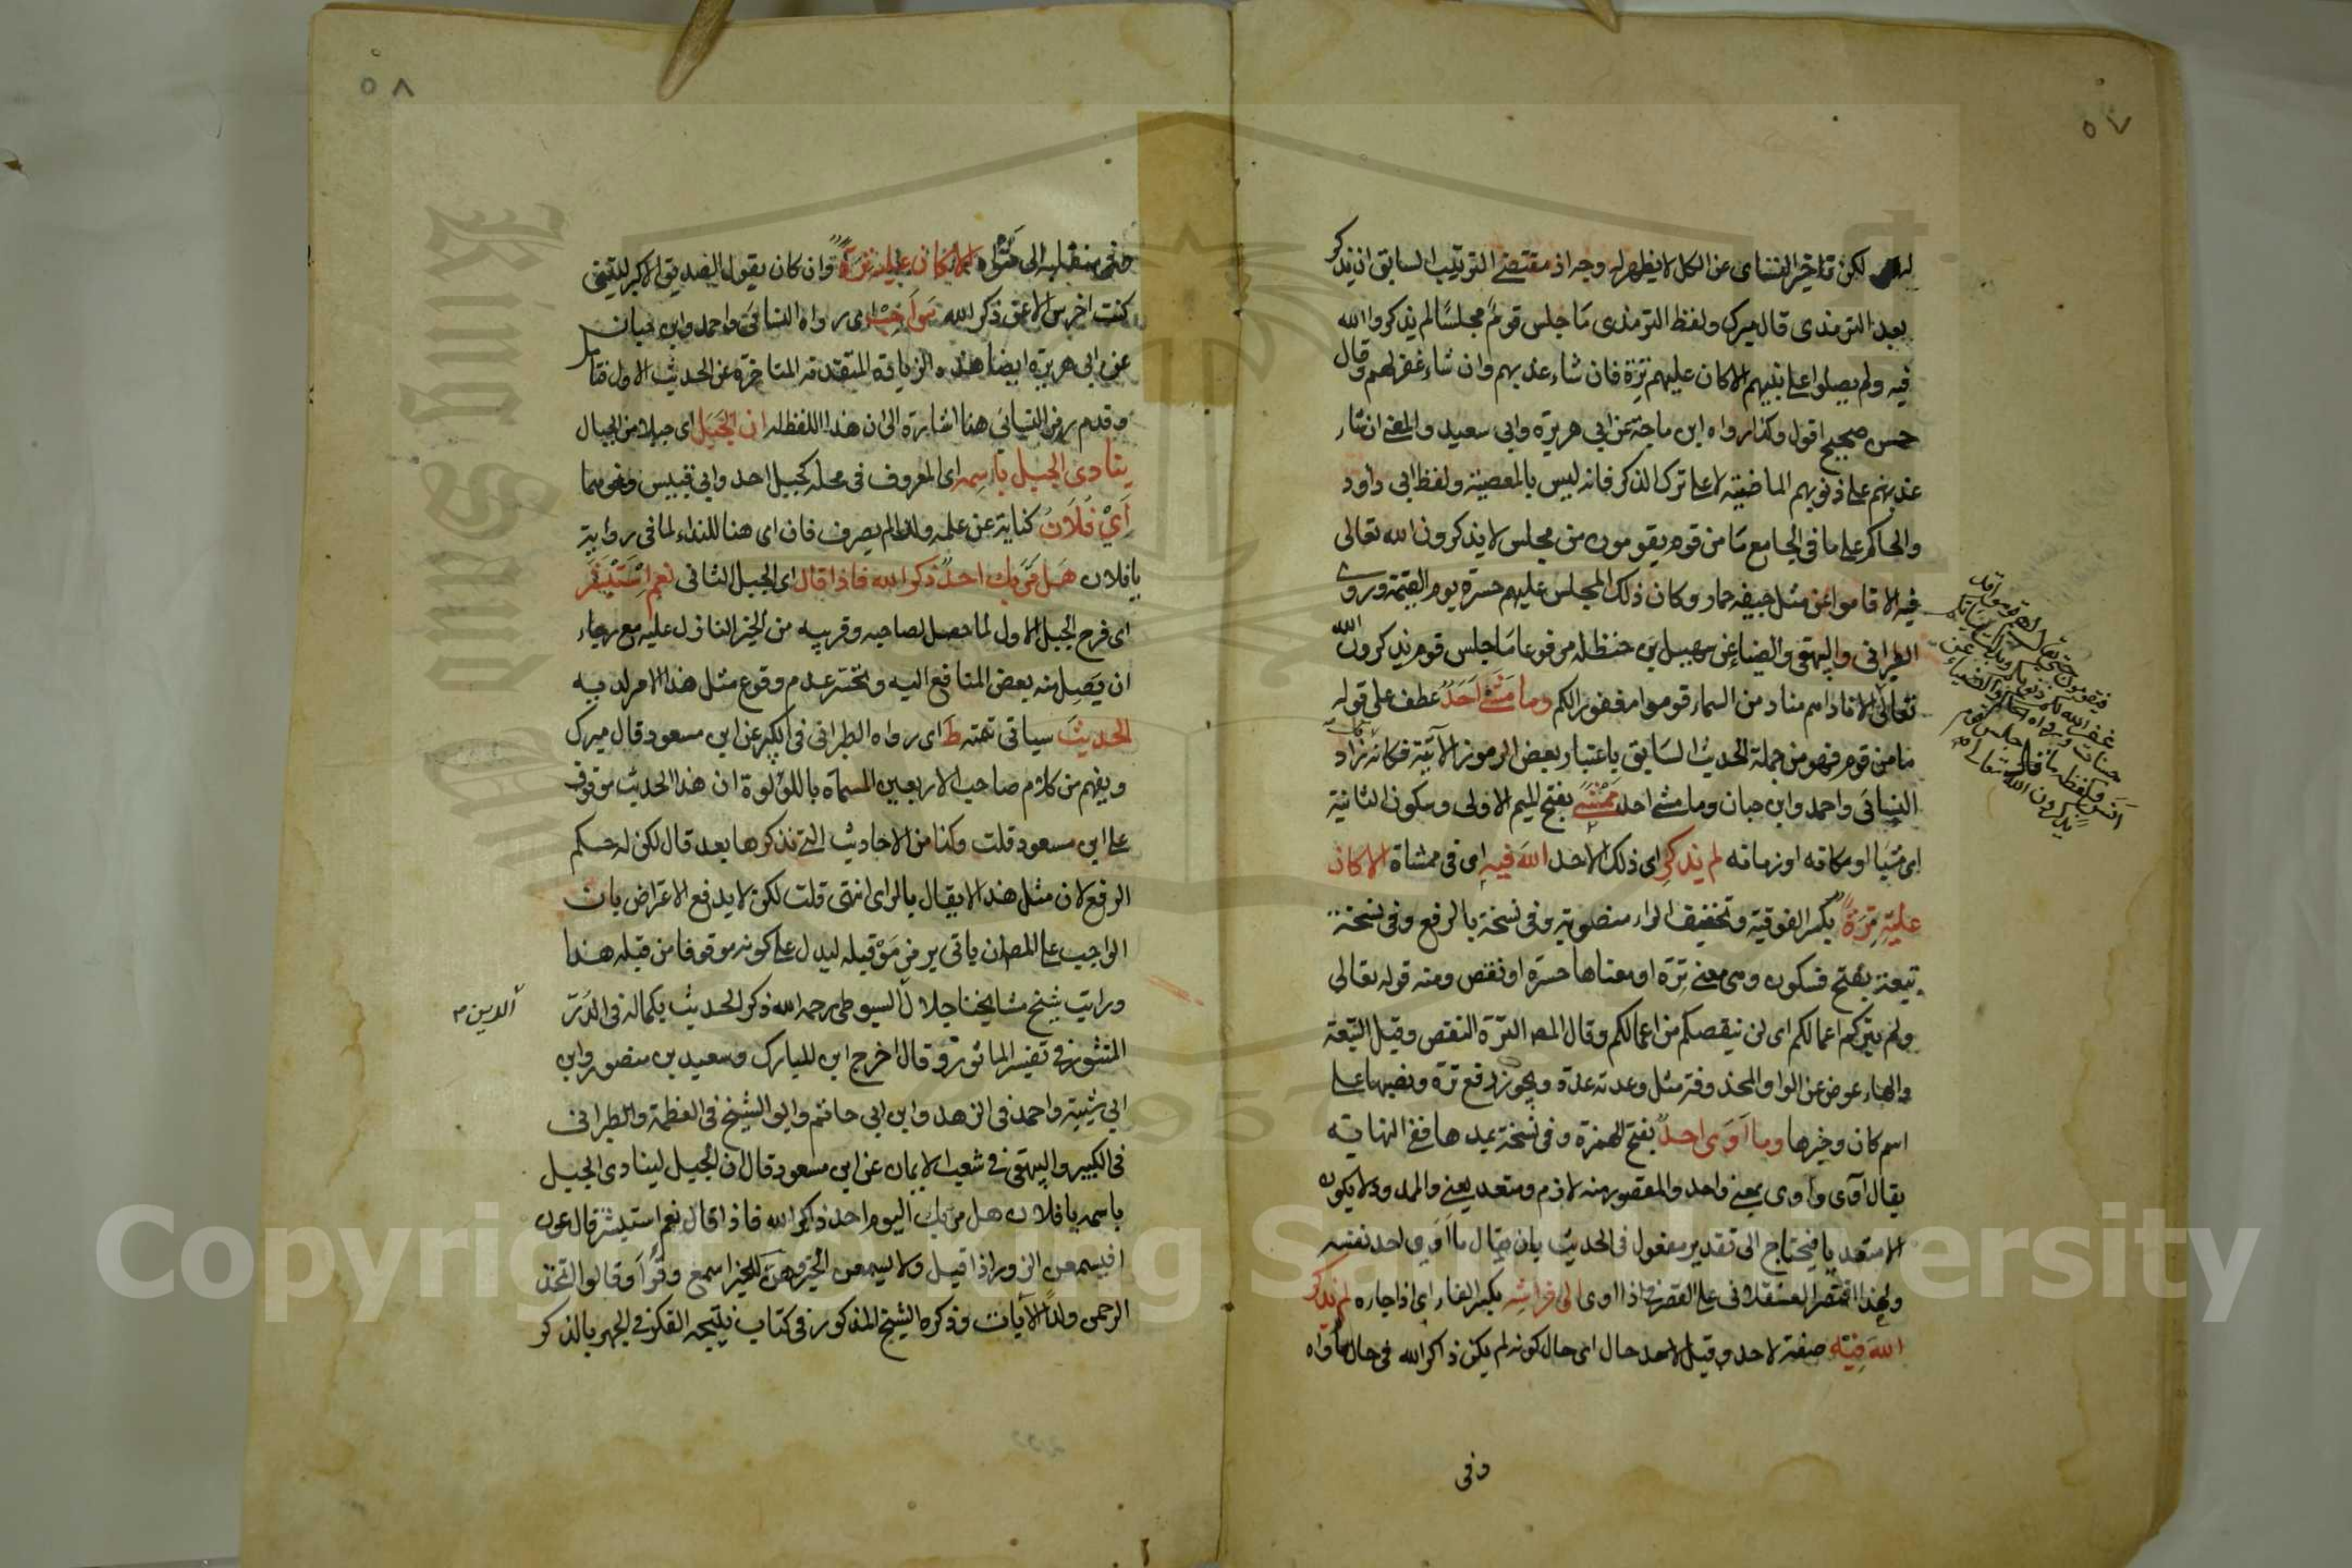 ٥٧
لكن تاخير النساى عن الكل لا يظهر له وجه اذ مقتضى الترتيب السابق ان يذكر
بعد الترمذى قال ميرك ولفظ الترمذى مَا جلس قومٌ مجلسًا لم يذكروا الله
فيه ولم يصلوا على نبيهم الا كان عليهم تِرَة فان شاء عذبهم وان شاء غفر لهم وقال
حسن صحيح اقول وكذا رواه ابن ماجة عن ابي هريرة وابي سعيد والمعنى ان شاء
عذبهم على ذنوبهم الماضية لا على ترك الذكر فانه ليس بالمعصية ولفظ ابى داود
والحاكم على ما فى الجامع مَا من قوم يقومون من مجلس لا يذكرون الله تعالى
فيه الا قاموا عن مثل جيفة حمار وكان ذلك المجلس عليهم حسرة يوم القيمة وروى
الطبرانى والبيهقى والضياء عن سهيل بن حنظلة مرفوعا مَا جلس قوم يذكرون الله
تعالى الا ناداهم مناد من السماء قوموا مغفورا لكم وما مَشٰى اَحَدٌ عطف على قوله
مَا من قوم فهو من جملة الحديث السَابق باعتبار بعض الرموز الآتية فكانه زاد
النسائى واحمد وابن حبان وما مشى احد مَمْشًى بفتح الميم الاولى وسكون الثانية
اى مشيا او مكانه او زمانه لم يذكر اى ذلك الاحد اللهَ فيهِ اى فى ممشاة الا كان
عليْهِ تِرَةً بكسر الفوقية وتخفيف الراء منصوبة وفى نسخة بالرفع وفى نسخة
تبعة بفتح فسكون وهى معنى تِرَة او معناها حسرة او نقص ومنه قوله تعالى
ولن يتركم اعمالكم اى لن ينقصكم من اعمالكم وقال المصـ الترة النقص وقيل التبعة
والهاء عوض عن الواو المحذوفة مثل وعدته عدة ويجوز رفع ترة ونصبها على
اسم كان وخبرها وما اَوٰى احدٌ بفتح الهمزة وفى نسخة بمدها ففى النهاية
يقال آوى وأوى بمعنى واحد والمقصور منه لازم ومتعد يعنى والممدود لا يكون
الا متعديا فيحتاج الى تقدير مفعول فى الحديث بان يقال ما اوى احد نفسه
ولهذا اقتصر العسقلانى على القصر اذا اوى الى فراشِه بكسر الفاء اى اذا جاره لم يذكر
اللهَ فِيْهِ صفة لاحد وقيل لاحد حال اى حال كونه لم يكن ذاكر الله فى حال مأواه
وفى
٥٨
حتى منقلبه الى مثواه الا كان عليه تِرَةً وان كان يقول الصديق الاكبر ليتنى
كنت اخرس الا عن ذكر الله سَ أ حِبْ اى رواه النسائى واحمد وابن حبان
عن ابى هريرة ايضا هذه الزيادة المتقدمة المتاخرة عن الحديث الاول فتامل
وقدم رمز النسائى هنا اشارة الى ان هذا اللفظ له ان الجَبَلَ اى جبلا من الجبال
ينادى الجبل باسِمه اى المعروف فى محله كجبل احد وابى قبيس ونحوهما
اَيْ فُلَانُ كناية عن علمه ولذا لم يصرف فان اى هنا للنداء لما فى رواية
يا فلان هَل مَرَّ بك احدٌ ذكر الله فاذا قال اى الجبل الثانى نعم اِسْتَبْشَرَ
اى فرح الجبل الاول لما حصل لصاحبه وقريبه من الخير النازل عليه مع رجاء
ان يَصِل منه بعض المنافع اليه وتحسر عدم وقوع مثل هذا الامر لديه
الحديثَ سياتى تتمته طَ اى رواه الطبرانى فى الكبير عن ابن مسعود قال ميرك
ويفهم من كلام صاحب الاربعين المسماة باللؤلوة ان هذا الحديث موقوف
على ابن مسعود قلت وكذا من الاحاديث التى نذكرها بعد قال لكن له حكم
الرفع لان مثل هذا لا يقال بالراى انتهى قلت لكن لا يدفع الاعتراض بان
الواجب على المصـ ان ياتى برمز مَوْ قبله ليدل على كونه موقوفا من قبله هذا
ورايت شيخ مشايخنا جلال السيوطى رحمه الله ذكر الحديث بكماله فى الدُرّ
الدين
المنثور فى تفسير الماثور وقال اخرج ابن المبارك وسعيد بن منصور وابن
ابي شيبة واحمد فى الزهد وابن ابى حاتم وابو الشيخ فى العظمة والطبرانى
فى الكبير والبيهقى فى شعب الايمان عن ابن مسعود قال ان الجبل لينادى الجبل
باسمه يا فلان هل مَرّ بك اليوم احد ذاكر الله فاذا قال نعم استبشر قال عون
افيسمعن الزور اذا قيل ولا يسمعن الخير وهنّ للخير اسمع وقرأ وقالوا اتخذ
الرحمن ولدًا الآيات وذكره الشيخ المذكور فى كتاب نتيجة الفكر فى الجهر بالذكر